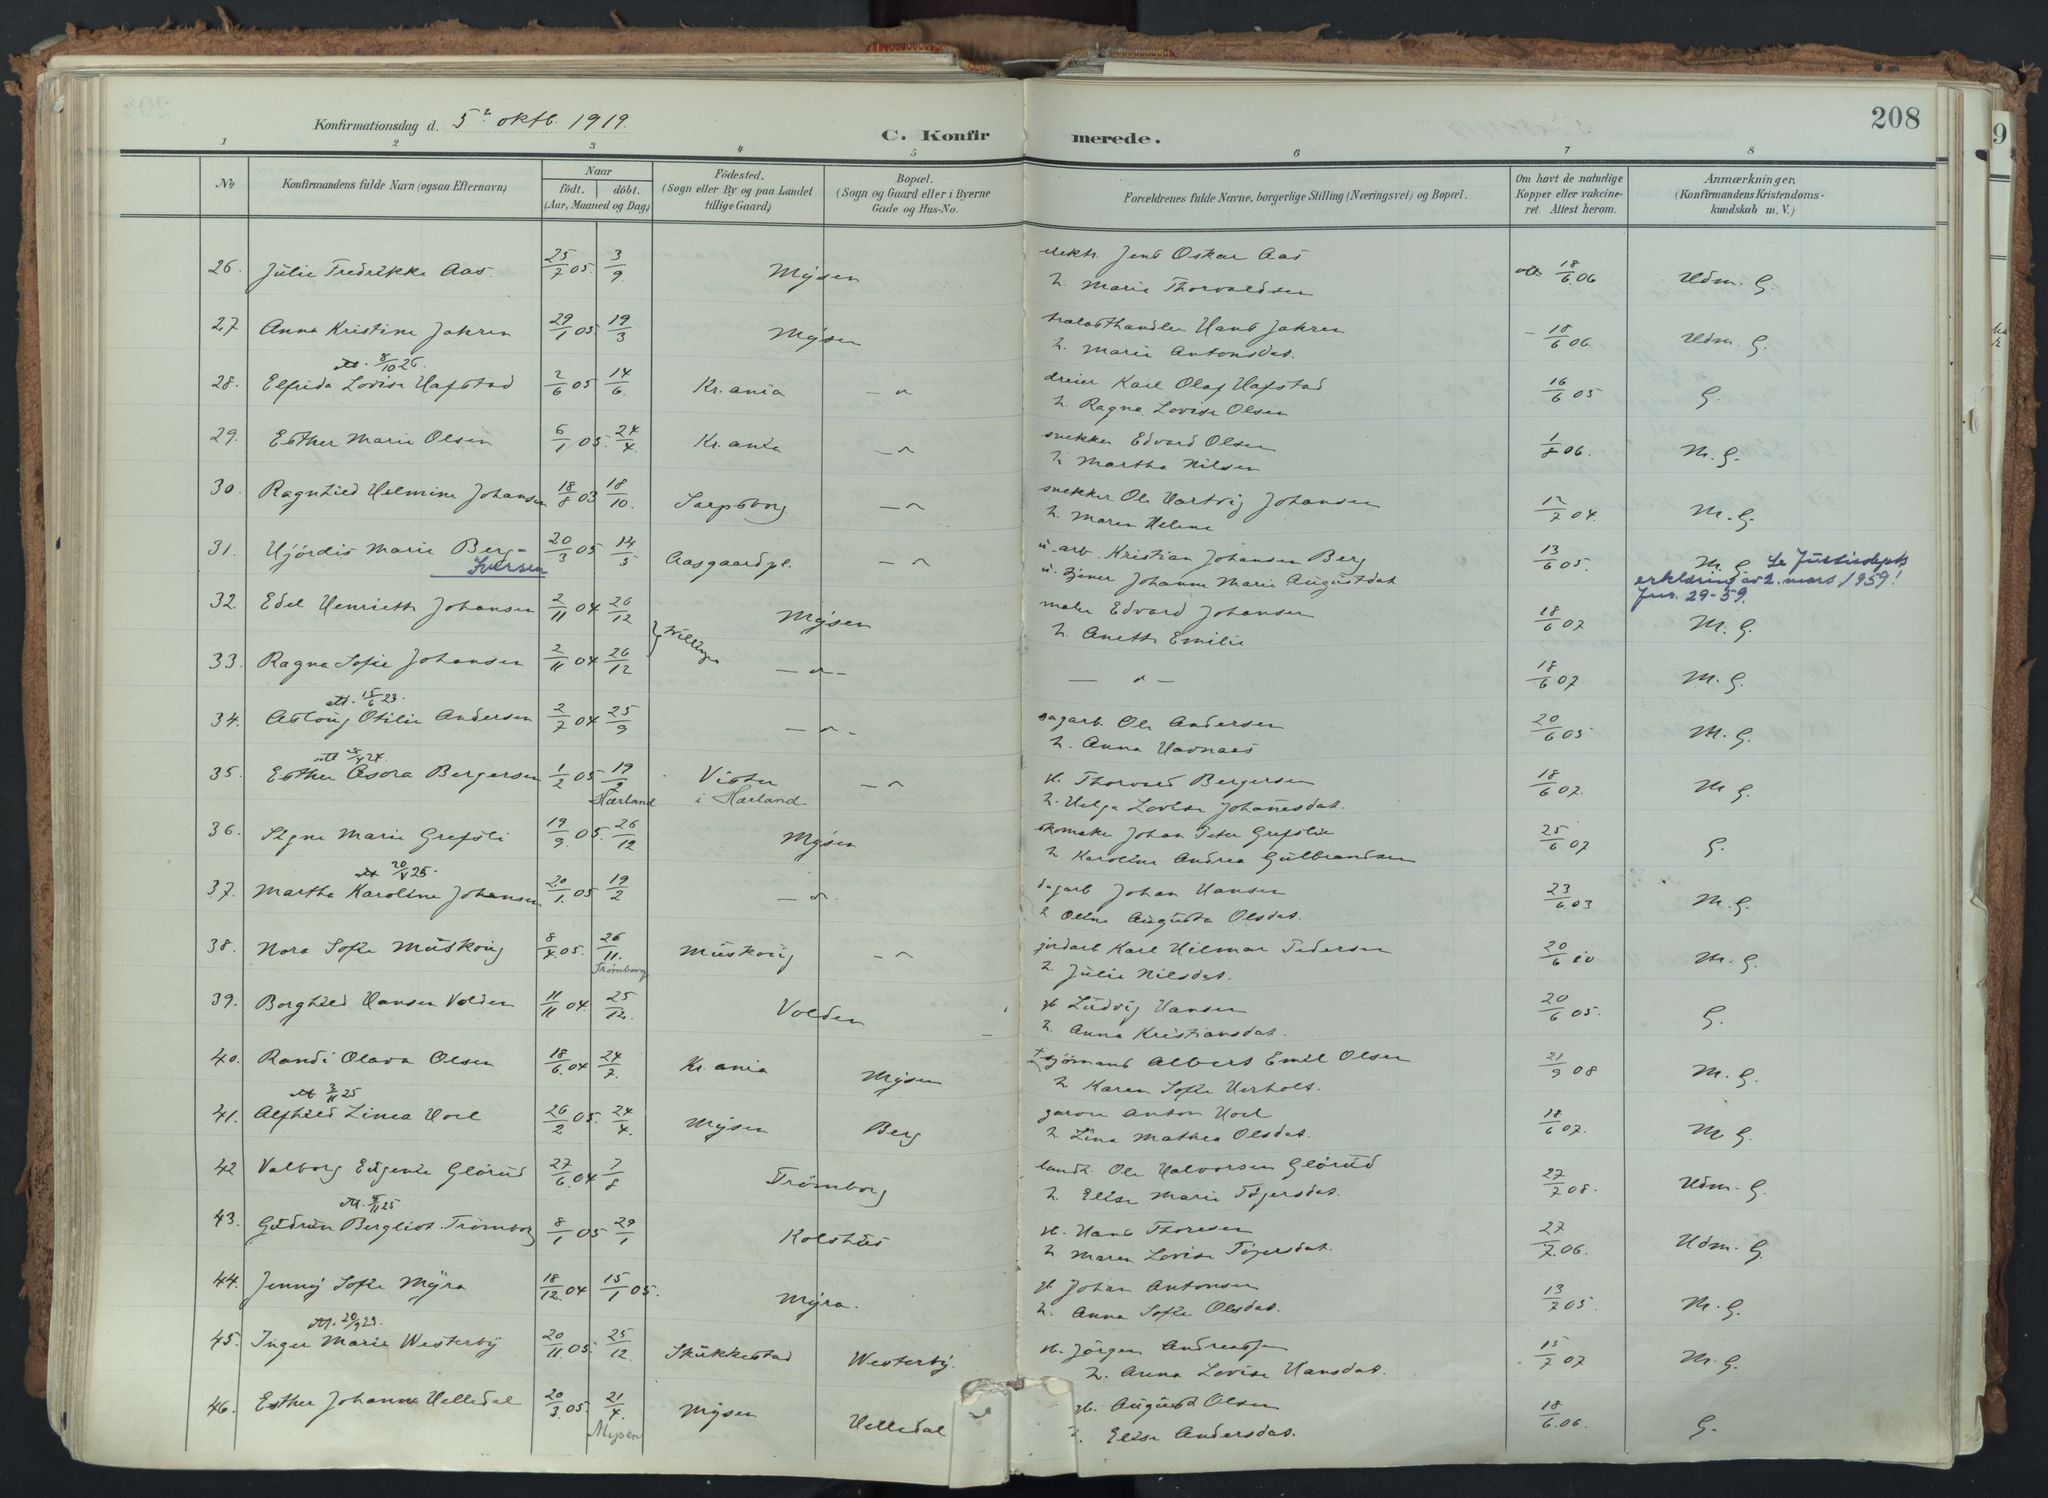 208
Konfirmationsdag d. 5te oktb. 1919.
C. Konfirmerede.
1 2 3 4 5 6 7 8
No
Konfirmandens fulde Navn (ogsaa Efternavn)
Naar
födt. döbt.
(Aar, Maaned og Dag)
Födested.
(Sogn eller By og paa Landet
tillige Gaard)
Bopæl.
(Sogn og Gaard eller i Byerne
Gade og Hus-No.
Forældrenes fulde Navne, borgerlige Stilling (Næringsvei) og Bopæl.
Om havt de naturlige
Kopper eller vakcine-
ret. Attest herom.
Anmærkninger,
(Konfirmandens Kristendoms-
kundskab m. V.)
26. Julie Fredrikke Aas. 25/7 05. 3/9 Mysen elektr. Jens Oskar Aas 18/6 06 Udm. G.
h. Marie Thorvaldsen
27 Anna Kristine Jahren 29/1 05 19/3 Mysen trælasthandler Hans Jahren - 18/6 06. Udm. G.
h. Marie Antonsdat.
att. 8/10 26.
28. Elfrida Lovise Hafstad 2/6 05 14/6. Kr.ania — " dreier Karl Olaf Hafstad 16/6 05 G.
h. Ragna Lovise Olsen
29. Esther Marie Olsen 6/1 05. 24/4 Kr.ania — " snekker Edvard Olsen 1/8 06. M. G.
h Martha Nilsen
30. Ragnhild Helmine Johansen 18/8 03 18/10. Sarpsborg — " snekker Ole Hartvig Johansen 12/7 04. M. G.
h. Maren Helene
31. Hjördis Marie Berg- 20/3 05 14/5 Aasgaardpl. — " u. arb. Kristian Johansen Berg 13/6 05. M. G. Se Justisdepts
Iversen u. tjener Johanne Marie Augustdat erklæring av 2. mars 1959!
Jnr. 29-59.
32. Edel Henriette Johansen 2/11 04 26/12 } Tvillinger Mysen maler Edvard Johansen 18/6 07 M. G.
h. Anette Emilie
33. Ragna Sofie Johansen 2/11 04 26/12 — " — — " — 18/6 07 M. G.
att. 15/6 23.
34. Aslaug Otilie Andersen 2/7 04 25/9 — " — sagarb. Ole Andersen 20/6 05 M. G.
h. Anna Havnaas
35. Esther Asora Bergersen 1/2 05 19/2 Vister — " gb. Thorvald Bergersen 18/6 07. M G.
Hærland i Hærland h. Helga Lovise Johannesdat.
36. Signe Marie Grefsli 19/9 05. 26/12 Mysen skomaker Johan Peter Grefslie 25/6 07 G.
h Karoline Andrea Gulbrandsen
att 20/5 25.
37. Martha Karoline Johansen 20/1 05 19/2 — ". dagarb Johan Hansen 23/6 03 M. G.
h Oline Augusta Olsdat.
38. Nora Sofie Muskoug 8/4 05. 26/11. Muskoug — " jordarb Karl Hilmar Pedersen 20/6 10 M. G.
Trömborg h. Julie Nilsdat.
39. Borghild Hansen Volden 11/11 04. 25/12. Volden gb Ludvig Hansen 20/6 05. G.
h. Anna Kristiansdat.
40. Randi Olava Olsen 18/6 04 24/7 Kr.ania Mysen † sjömand Albert Emil Olsen 21/9 08 M. G.
h Karen Sofie Herholt.
att 3/11 25
41. Alfhild Linea Hoel 26/2 05. 24/4 Mysen Berg garver Anton Hoel 18/6 07. M G.
h Lina Mathea Olsdat.
42 Valborg Eugenie Glörud 27/6 04 7/8 Trömborg landh. Ole Halvorsen Glörud 27/7 08. Udm. G.
h. Elise Marie Tögersdat.
att. 4/11 25
43. Gudrun Bergliot Trömborg 8/1 05 29/1 Kolshus gb. Hans Thoresen 27/7 06. Udm. G.
h Maren Lovise Tögersdat.
44. Jenny Sofie Myra 18/12 04 15/1 05. Myra. gb. Johan Antonsen 13/7 05. M. G.
h. Anna Sofie Olsdat.
att. 20/9 29
45. Inger Marie Westerby 20/11 05. 25/12 Skukkestad Westerby. gb. Jörgen Andreassen 15/7 07 M. G.
h. Anna Lovise Hansdat.
46. Esther Johanne Helledal 20/3 05. 21/4. Mysen Helledal gb. August Olsen 18/6 06. G.
Mysen h. Elise Andersdat.